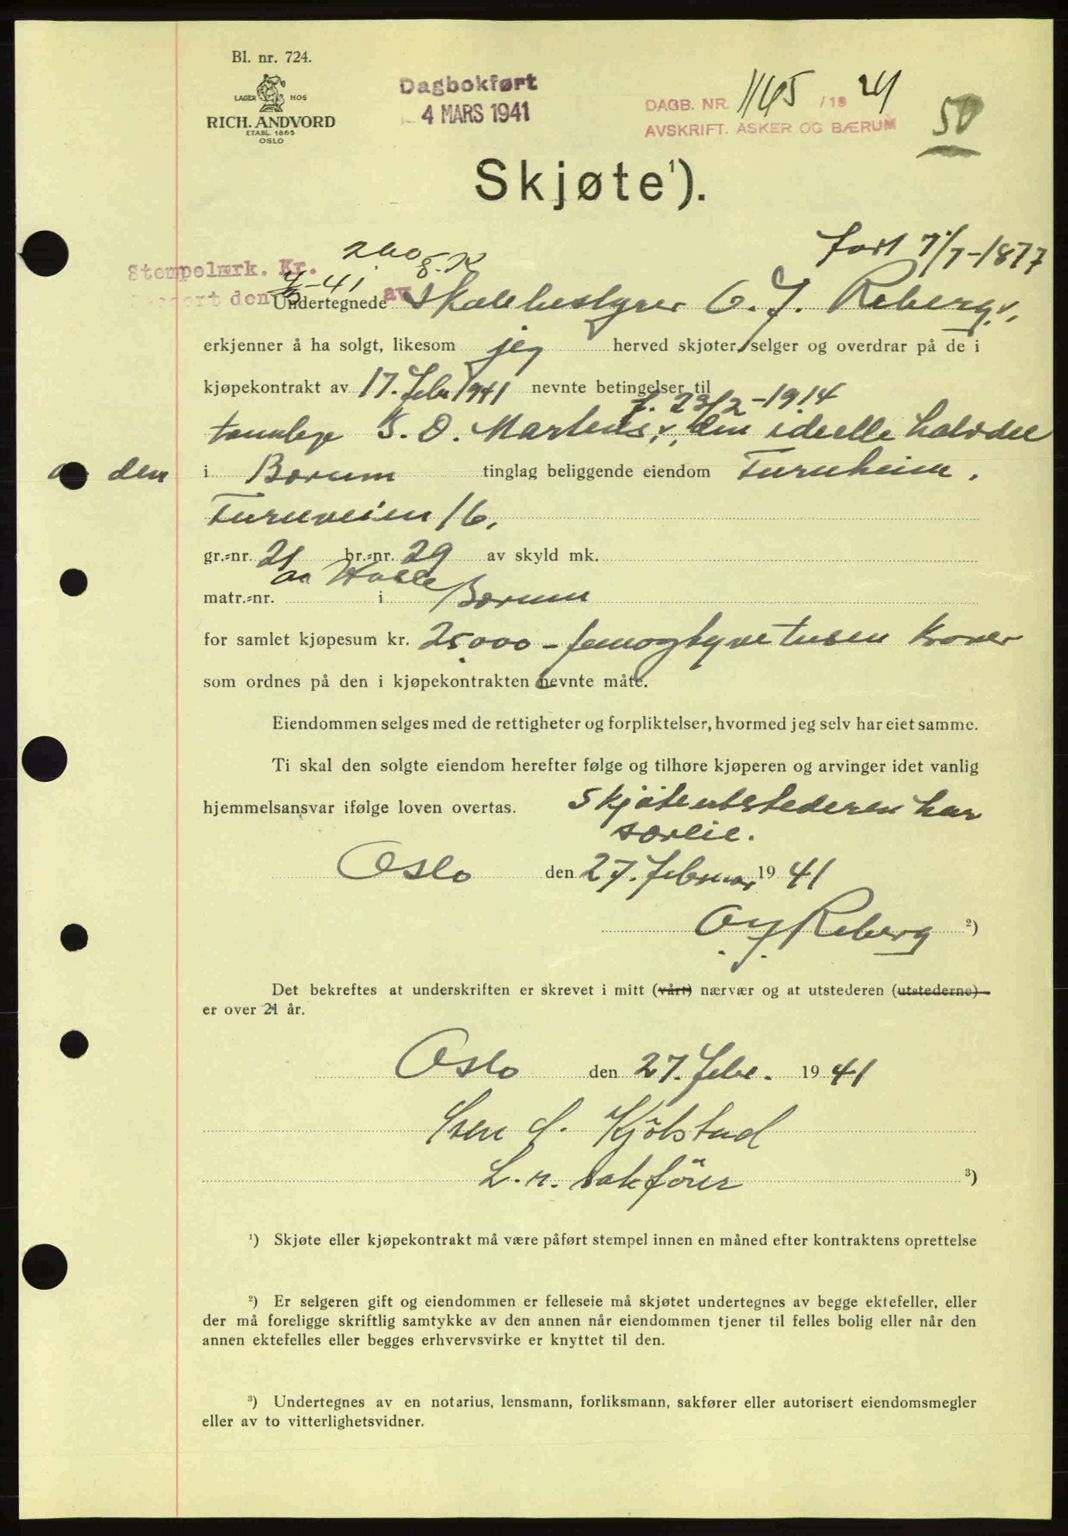 Bl. nr. 724.
LAGER HOS
RICH. ANDVORD
ETABL. 1865
OSLO
Dagbokført
4 MARS 1941
DAGB. NR. 1145 /19 24
AVSKRIFT. ASKER OG BÆRUM
50
Skjøte¹).
født 7/7-1877
Stempelmerk. Kr. 260
den 4/3-41 av
Undertegnede Skolebestyrer O. J. Reberg
erkjenner å ha solgt, likesom jeg herved skjøter, selger og overdrar på de i
kjøpekontrakt av 17. Febr 1941 nevnte betingelser til
f. 23/2-1914
tannlege S. O. Martens, den ideelle halvdel
av den i Bærum tinglag beliggende eiendom Furuheim,
Furuveien 16,
gr.-nr. 21 br.-nr. 29 av skyld mk.
matr.-nr. i Bærum
for samlet kjøpesum kr. 25.000 - femogtyvetusen kroner
som ordnes på den i kjøpekontrakten nevnte måte.
Eiendommen selges med de rettigheter og forpliktelser, hvormed jeg selv har eiet samme.
Ti skal den solgte eiendom herefter følge og tilhøre kjøperen og arvinger idet vanlig
hjemmelsansvar ifølge loven overtas. Skjøteutstederen har
særeie.
Oslo den 27. februar 1941
O J Reberg ²)
Det bekreftes at underskriften er skrevet i mitt (vårt) nærvær og at utstederen (utstederne)
er over 21 år.
Oslo den 27. Febr. 1941
Kjölstad
L.r. sakförer ³)
¹) Skjøte eller kjøpekontrakt må være påført stempel innen en måned efter kontraktens oprettelse
²) Er selgeren gift og eiendommen er felleseie må skjøtet undertegnes av begge ektefeller, eller
der må foreligge skriftlig samtykke av den annen når eiendommen tjener til felles bolig eller når den
annen ektefelles eller begges erhvervsvirke er knyttet til den.
³) Undertegnes av en notarius, lensmann, forliksmann, sakfører eller autorisert eiendomsmegler
eller av to vitterlighetsvidner.